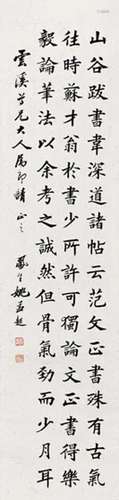 山谷跋書韋深道諸帖云范文正書殊有古氣
往時蘇才翁於書少所許可獨論文正書得樂
毅論筆法以余考之誠然但骨氣勁而少月耳
雲溪學兄大人屬即請正之
姚孟起